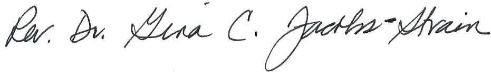 Rev. Dr. Gina C. Jacobs-Strain